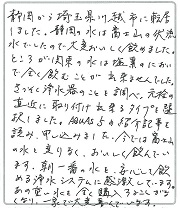 静岡から埼玉県川越市に転居
しました。静岡の水は富士山の伏流
水でしたので大変おいしく飲めました。
ところが関東の水は塩素のにおい
で全く飲むことが出来ませんでした。
さっそく浄水器のことを調べ、元栓の
直近に取り付け出来るタイプを選
択しました。の紹介記事を
読み、申し込みました。今では富士山
の水と変りなく、おいしく飲んでい
ます。朝一番の水を、安心して飲
める浄水システムに感激しています。
あの重い水を全く購入することがな
くなり、一家で大変喜んでいます。